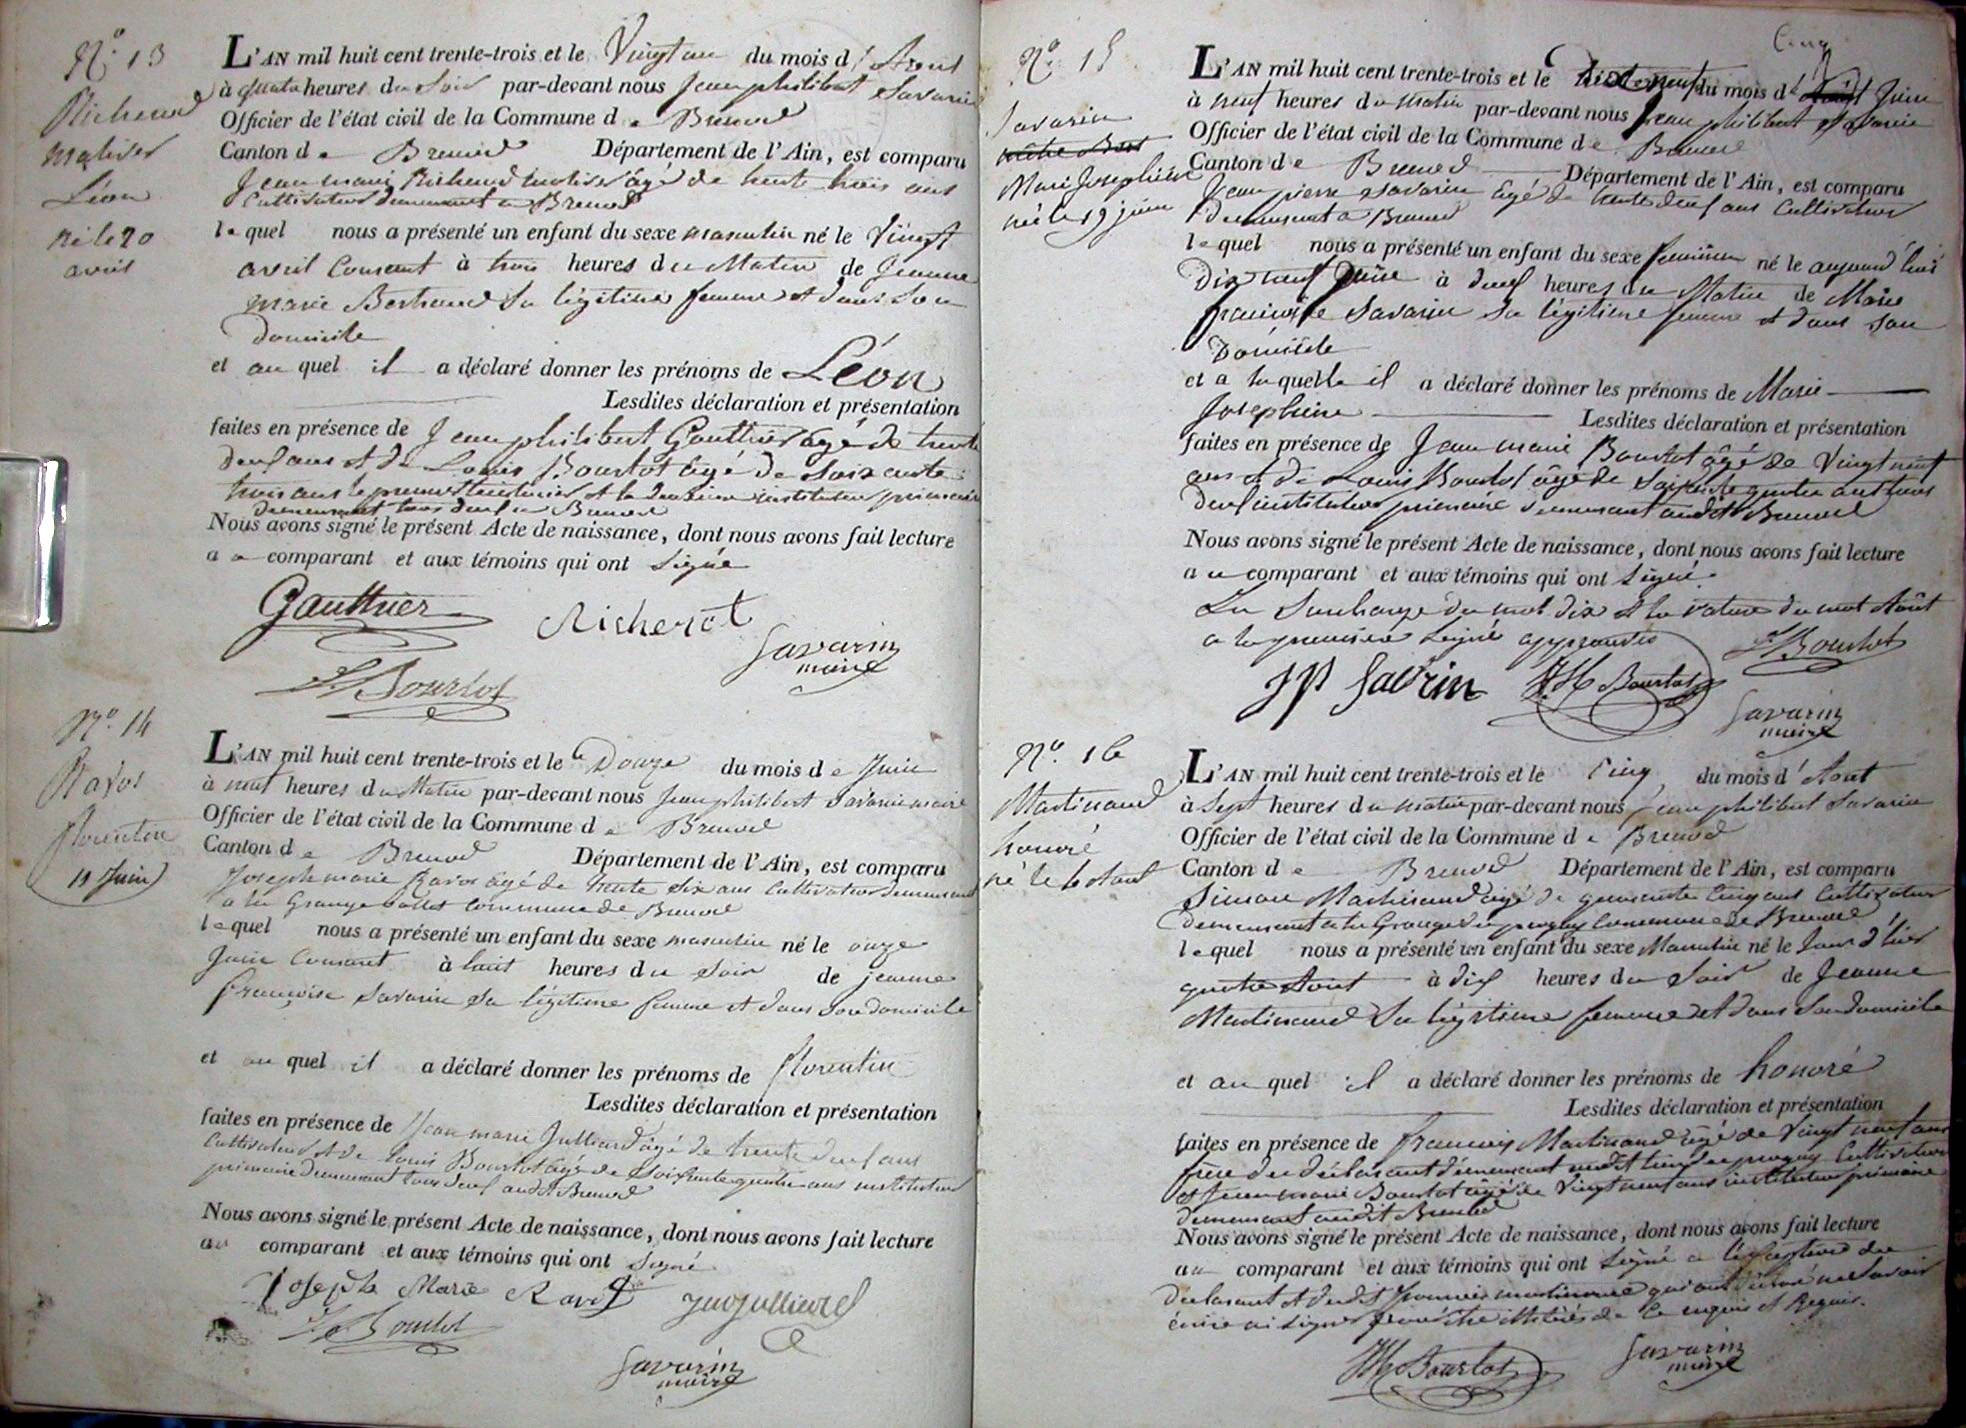 N.o 13
Léon
né le 20
avril
L'AN mil huit cent trente-trois et le Vingt un du mois d'Avril
à quatre heures du Soir par-devant nous Jean philibert Savarin
Officier de l'état civil de la Commune de Brenod
Canton de Brenod Département de l'Ain, est comparu
Jean marie âgé de trente trois ans
Cultivateur demeurant a Brenod
lequel nous a présenté un enfant du sexe masculin né le Vingt
avril Courant à trois heures du Matin de Jeanne
marie Bertrand Sa légitime femme et dans Son
domicile
et au quel il a déclaré donner les prénoms de Léon
Lesdites déclaration et présentation
faites en présence de Jean philibert Gauthier âgé de trente
deux ans et de Louis Bourlot âgé de Soixante
trois ans le premier et le deuxième instituteur primaire
demeurant tous deux a Brenod
Nous avons signé le présent Acte de naissance, dont nous avons fait lecture
au comparant et aux témoins qui ont Signé
Gauthier Richerot
Savarin
maire
L Bourlot
N.o 14
Ravos
florentin
11 Juin
L'AN mil huit cent trente-trois et le Douze du mois de Juin
à neuf heures du Matin par-devant nous Jean philibert Savarin maire
Officier de l'état civil de la Commune de Brenod
Canton de Brenod Département de l'Ain, est comparu
Joseph marie Ravos âgé de trente Six ans Cultivateur demeurant
à la Grange commune de Brenod
lequel nous a présenté un enfant du sexe masculin né le onze
Juin Courant à huit heures du Soir de jeanne
françoise Savarin Sa légitime femme et dans Son domicile
et au quel il a déclaré donner les prénoms de florentin
Lesdites déclaration et présentation
faites en présence de Jean marie Julliard âgé de trente deux ans
Cultivateur et de Louis Bourlot âgé de Soixante quatre ans instituteur
primaire demeurant tous deux audit Brenod
Nous avons signé le présent Acte de naissance, dont nous avons fait lecture
au comparant et aux témoins qui ont Signé
Joseph Marie Ravos
L Bourlot
Savarin
maire
Cinq
N.o 15
Savarin
Marie Josephine
née le 19 juin
L'AN mil huit cent trente-trois et le dix neuf du mois d' Juin
à neuf heures du matin par-devant nous Jean philibert Savarin
Officier de l'état civil de la Commune de Brenod
Canton de Brenod Département de l'Ain, est comparu
Jean pierre Savarin âgé de trente deux ans Cultivateur
demeurant a Brenod
lequel nous a présenté un enfant du sexe feminin né le aujourd'hui
Dix neuf Juin à deux heures du Matin de Marie
françoise Savarin Sa légitime femme et dans son
Domicile
et a laquelle il a déclaré donner les prénoms de Marie
Josephine Lesdites déclaration et présentation
faites en présence de Jean marie Bourlot âgé de Vingt neuf
ans et de Louis Bourlot âgé de Soixante quatre ans tous
deux instituteurs primaire demeurant audit Brenod
Nous avons signé le présent Acte de naissance, dont nous avons fait lecture
au comparant et aux témoins qui ont Signé
La Surcharge du mot dix et la rature du mot Août
a la première ligne approuvés
L Bourlot
JP Savrin JM Bourlot
Savarin
maire
N.o 16
Martinand
honoré
né le 4 Aout
L'AN mil huit cent trente-trois et le Cinq du mois d'Aout
à Sept heures du matin par-devant nous Jean philibert Savarin
Officier de l'état civil de la Commune de Brenod
Canton de Brenod Département de l'Ain, est comparu
Simon Martinand âgé de quarante Cinq ans Cultivateur
demeurant a la Grange du Commune de Brenod
lequel nous a présenté un enfant du sexe Masculin né le Jour d'hier
quatre Aout à dix heures du Soir de Jeanne
Martinand Sa légitime femme et dans Son domicile
et au quel il a déclaré donner les prénoms de honoré
Lesdites déclaration et présentation
faites en présence de françois Martinand âgé de Vingt neuf ans
frère du déclarant demeurant audit Cultivateur
et Jean marie Bourlot âgé de Vingt neuf ans instituteur primaire
demeurant audit Brenod
Nous avons signé le présent Acte de naissance, dont nous avons fait lecture
au comparant et aux témoins qui ont Signé a l'exception du
déclarant et dudit françois martinand qui ont déclaré ne Savoir
écrire ni Signer de ce enquis et Requis.
JM Bourlot
Savarin
maire